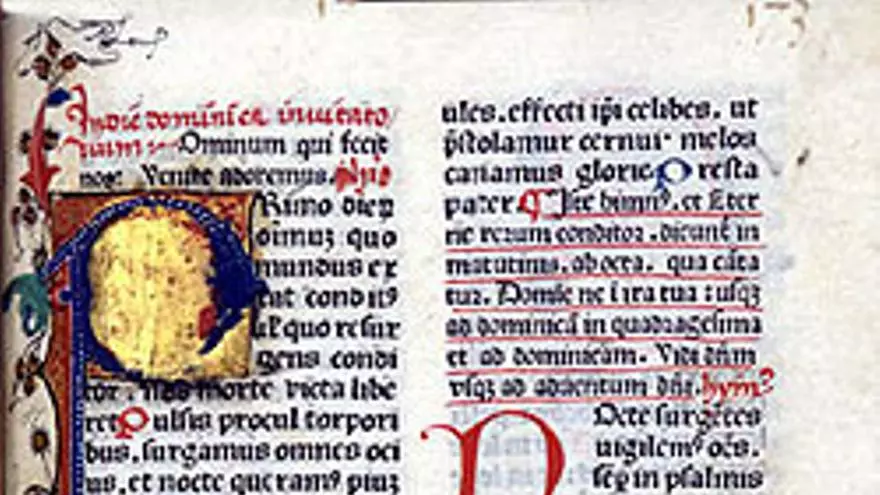 173
In die dominica inuitato
rium Dominum qui fecit
nos: Venite adoremus. phs
PRimo dieʀ
oīmuʒ quo
mundus ex
tat conditꝰ
uel quo resur
gens condi
tor. Nos morte victa libe
ret Pulsis procul torpori
bus. surgamus omnes oci
us. et nocte queramꝰ piuʒ
ules. effecti ipi celibes. ut
pstolamur cernui· melos
canamus glorie Presta
pater ¶ Hec himnꝰ. et Eter
ne rerum conditor. dicunt̄ in
matutinis. ab octa. qua cāta
tur. Domīe ne ī ira tua : usqʒ
ad dominicā in quadragesima
et ad dominicam. Vidi dn̄m
vsqʒ ad aduentum dn̄i. hymꝰ
Nocte surgētes
uigilemꝰ oēs.
sēp in psalmis